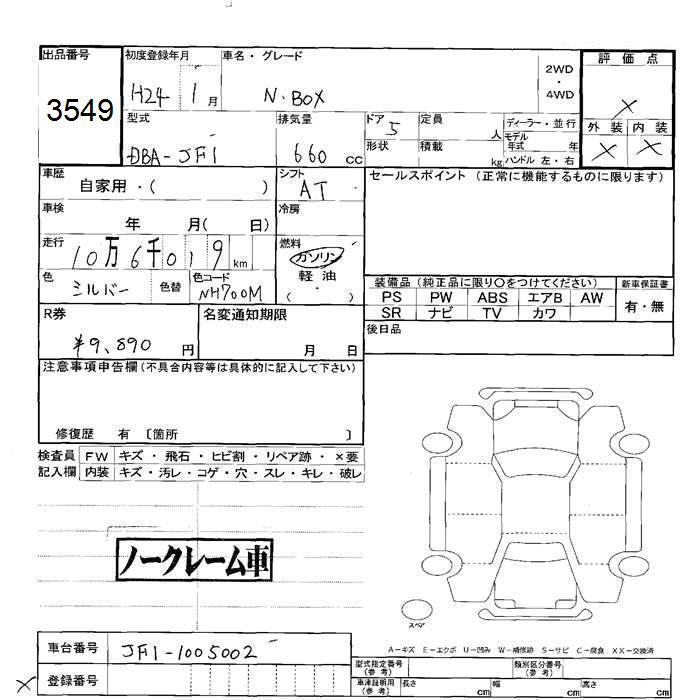 出品番号
3549
初度登録年月
H24 1月
車名・グレード
N・BOX
2WD
・
4WD
評価点
×
外装 内装
× ×
型式
DBA-JF1
排気量
660 cc
ドア 5
形状
定員 人
積載 kg
ディーラー・並行
モデル
年式 年
ハンドル 左・右
車歴
自家用・( )
シフト
AT
セールスポイント (正常に機能するものに限ります)
車検
年 月( 日)
冷房
走行
10万6千019 km
燃料
ガソリン
軽・油
( )
色
ミルバー
色替
色コード
NH700M
装備品 (純正品に限り○をつけてください)
新車保証書
PS PW ABS エアB AW
有・無
SR ナビ TV カワ
R券
¥9,890 円
名変通知期限
月 日
後日品
注意事項申告欄 (不具合内容等は具体的に記入して下さい)
修復歴 有 〔箇所 〕
検査員
記入欄
FW キズ・飛石・ヒビ割・リペア跡・×要
内装 キズ・汚レ・コゲ・穴・スレ・キレ・破レ
ノークレーム車
スペア
A-キズ E-エクボ U-凹み W-補修跡 S-サビ C-腐食 XX-交換済
車台番号
JF1-1005002
× 登録番号
型式指定番号
(参考)
類別区分番号
(参考)
車庫証明用
(参考)
長さ cm 幅 cm 高さ cm